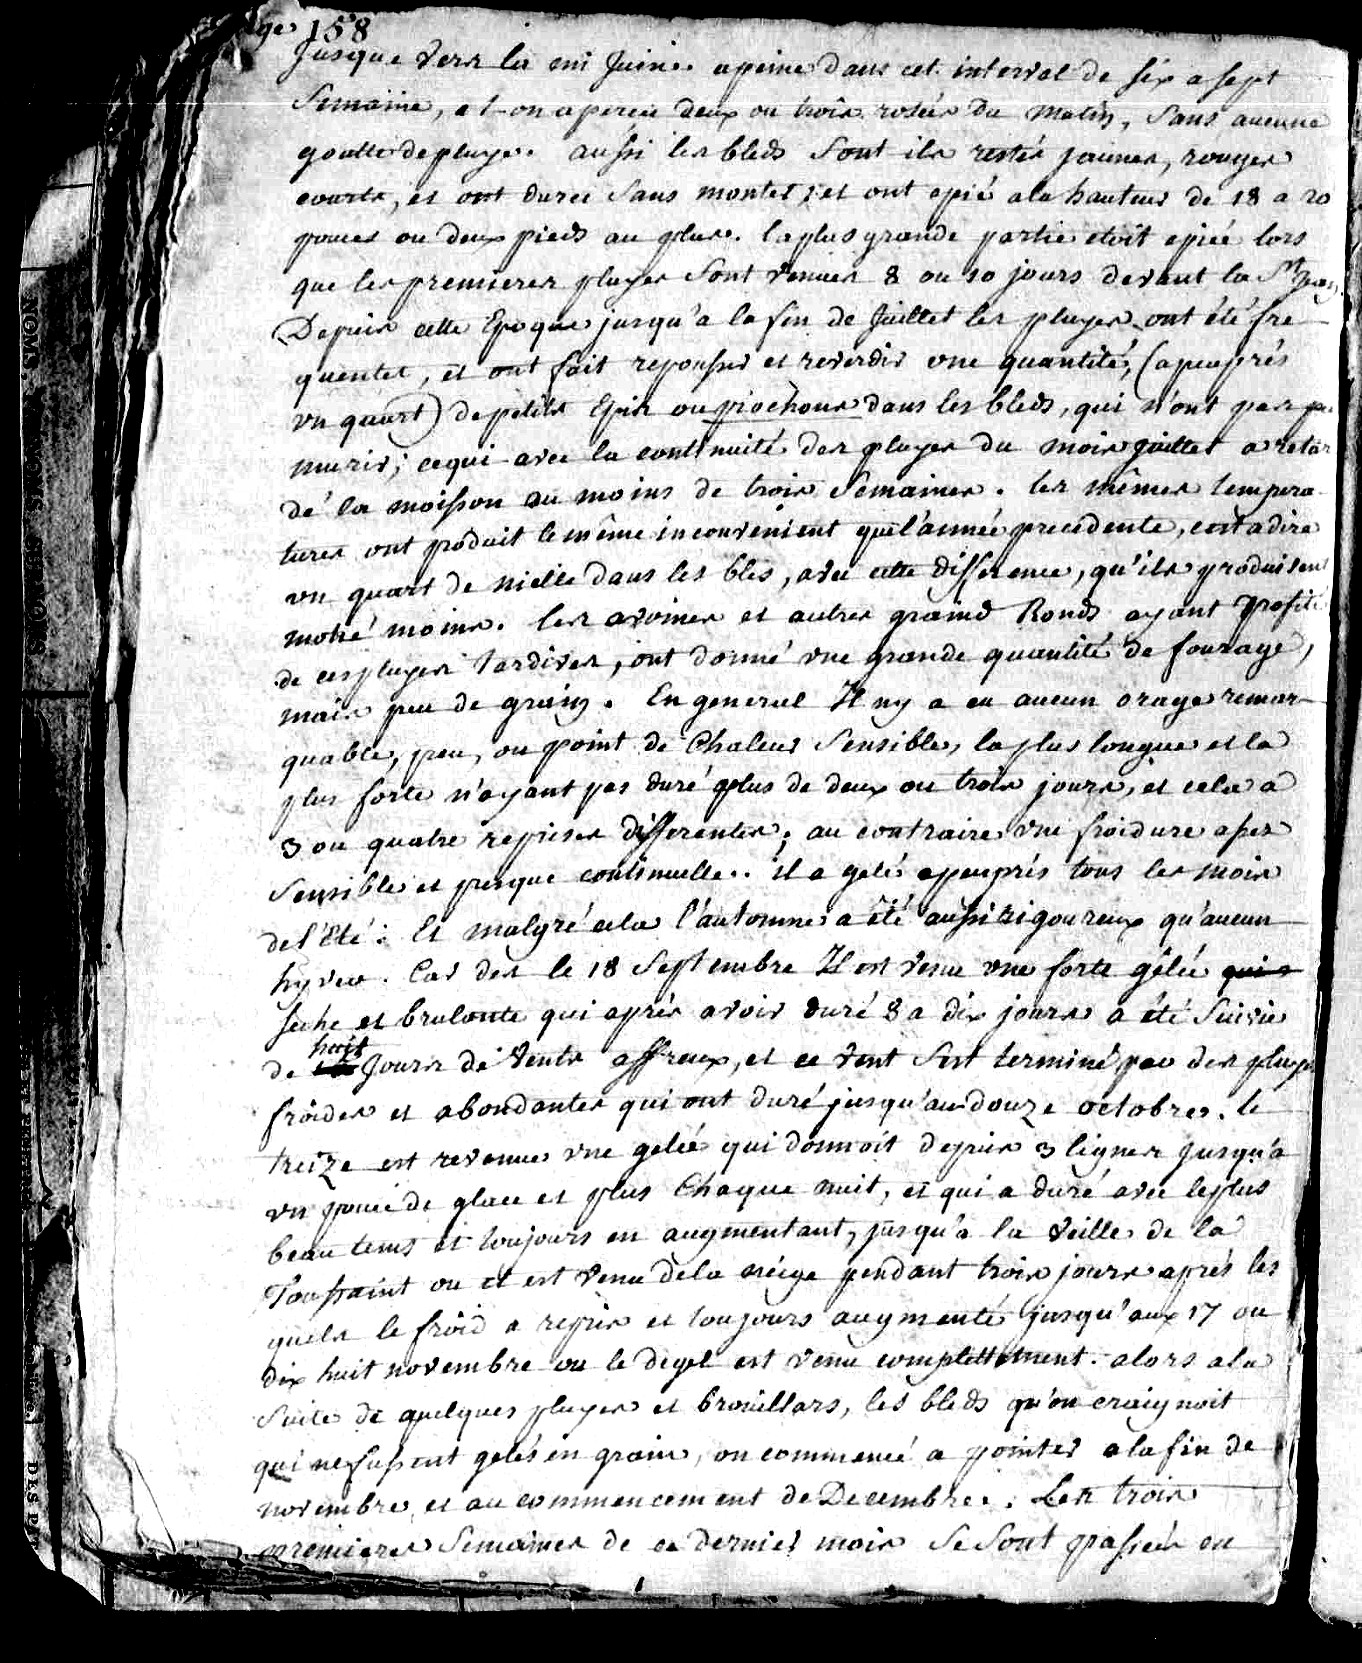 158
Jusque vers la mi Juin. a peine dans cet interval de six a sept
Semaine, at-on aperçu deux ou trois rosées du matin, Sans aucune
goutte de pluye. aussi les bleds Sont ils restés jaunes, rouges
courts, et ont durci Sans monter; et ont epié a la hauteur de 18 a 20
pouces ou deux pieds au plus. la plus grande partie etoit epiée lors
que les premieres pluyes Sont venues 8 ou 10 jours devant la St Jean.
Depuis cette Epoque jusqu'a la fin de Juillet les pluyes ont été fre
quentes, et ont fait repousser et reverdir une quantité, (a peuprés
un quart) de petits Epis ou piochons dans les bleds, qui n'ont pas pu
murir; ce qui avec la continuité des pluyes du mois juillet a retar
dé la moisson au moins de trois Semaines. les mêmes tempera
tures ont produit le même inconvenient que l'année precedente, cest a dire
un quart de nielle dans les blés, avec cette difference, qu'ils produisent
motié moins. les avoines et autres grains Ronds ayant profité
de ces pluyes tardives, ont donné une grande quantité de fourage,
mais peu de grains. En general Il ny a eu aucun orage remar
quable, peu, ou point de Chaleur Sensible, la plus longue et la
plus forte n'ayant pas duré plus de deux ou trois jours, et cela a
3 ou quatre reprises differentes; au contraire une froidure assez
Sensible et presque continuelle. il a gelés a peuprés tous les mois
del'Eté: Et malgré cela l'automne a été aussi rigoureux qu'aucun
hyver. Car des le 18 Septembre Il est venu une forte gélée qui
seche et brulante qui aprés avoir duré 8 a dix jours a été Suivie
de huit Jours de Vents affreux, et ce vent Sest terminé par des pluyes
froides et abondantes qui ont duré jusqu'au douze octobre. le
treize est revenue une gelée qui donnoit depuis 3 lignes jusqu'a
un pouce de glace et plus Chaque nuit, et qui a duré avec le plus
beau tems et toujours en augmentant, jusqu'a la Veille de la
Toussaint ou il est venu de la neige pendant trois jours aprés les
quels le froid a repris et toujours augmenté jusqu'aux 17 ou
dix huit novembre ou le degel est venu complettement. alors a la
Suite de quelques pluyes et brouillars, les bleds qu'on craignoit
qui ne fussent gelés en grain, on commencé a pointer a la fin de
novembre et au commencement de Decembre. Les trois
premieres Semaines de ce dernier mois Se Sont passées en